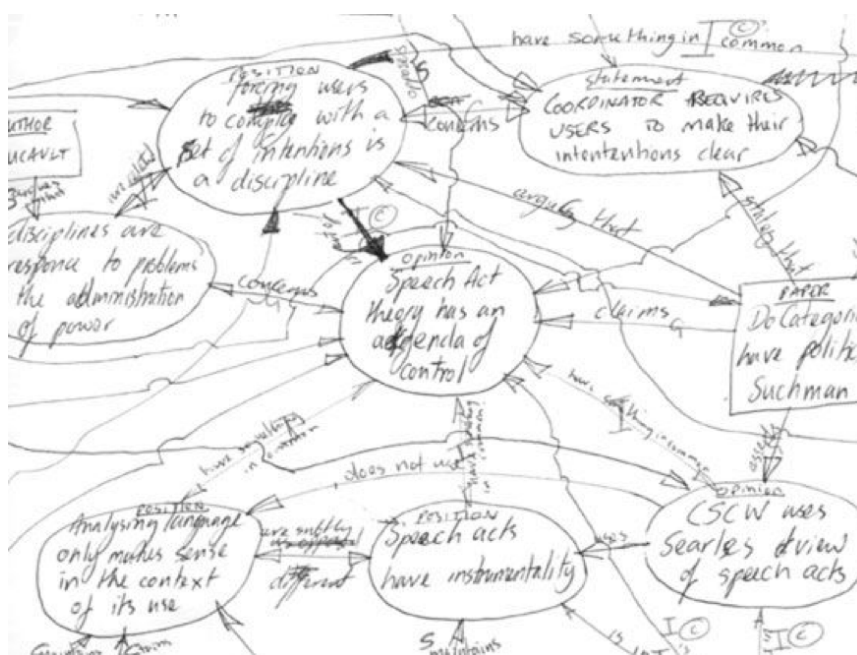 have something in common
I ©
POSITION
forcing users
to comply with a
set of intentions is
a discipline
S
concerns
statement
COORDINATOR REQUIRES
USERS TO MAKE their
intententions clear
UTHOR
UCAULT
are called
argues that
states that
disciplines are
response to problems
the administration
of power
concerns
I ©
opinion
Speech Act
theory has an
agenda of
control
claims
G
PAPER
Do Categori
have politic
Suchman
asserts
have something
in common
does not use
have something
in common
have something in common
I
POSITION
Analysing language
only makes sense
in the context
of its use
are subtly
different
POSITION
Speech acts
have instrumentality
uses
opinion
CSCW uses
Searles view
of speech acts
S
maintains
is
I ©
I ©